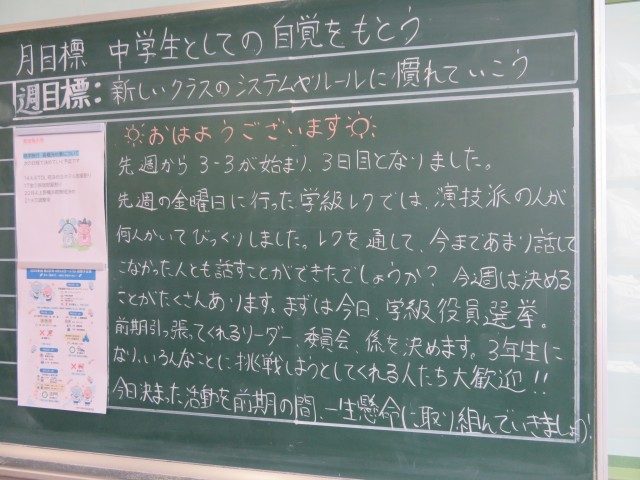 月目標 中学生としての自覚をもとう
週目標: 新しいクラスのシステムやルールに慣れていこう
おはようございます
先週から3-3が始まり、3日目となりました。
先週の金曜日に行った学級レクでは、演技派の人が
何人かいてびっくりしました。レクを通して、今まであまり話して
こなかった人とも話すことができたでしょうか？今週は決める
ことがたくさんあります。まずは今日、学級役員選挙。
前期引っ張ってくれるリーダー、委員会、係を決めます。3年生に
なり、いろんなことに挑戦しようとしてくれる人たち大歓迎!!
今日決まった活動を前期の間、一生懸命に取り組んでいきましょう!